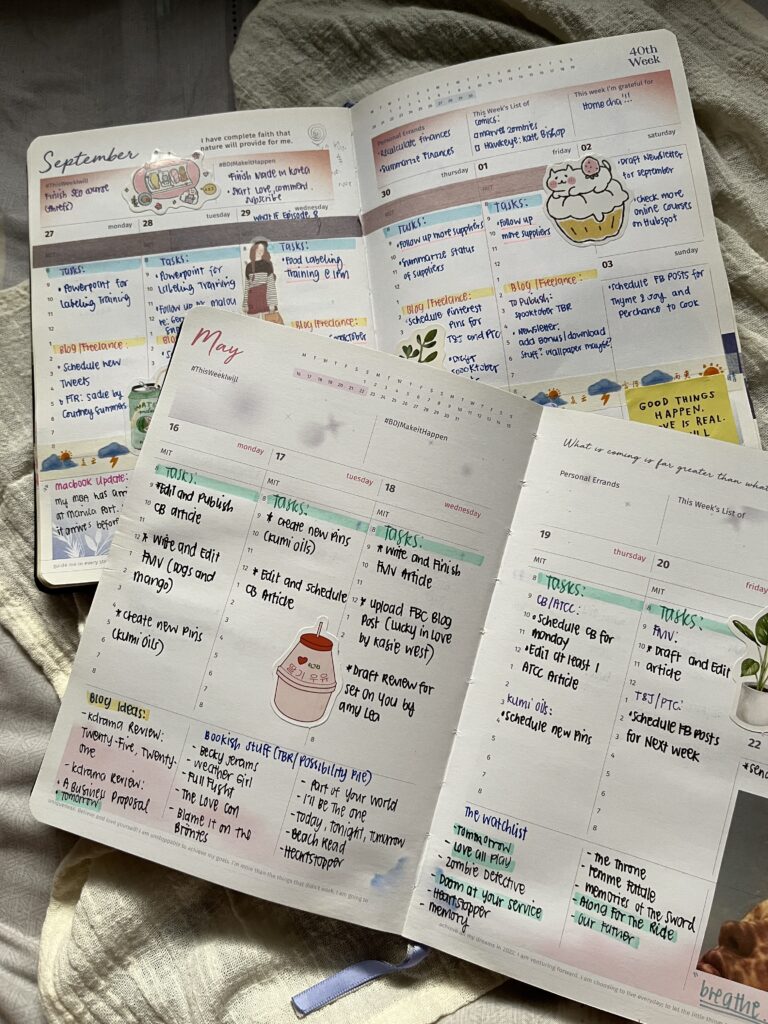 September
I have complete faith that
nature will provide for me.
#ThisWeekIWill
Finish SEO course
#BDJMakeItHappen
• Finish Made in Korea
• Start Love, Comment,
Subscribe
27
monday
28
tuesday
29
wednesday
WHAT IF Episode 8
Tasks:
• Powerpoint for
Labeling Training
Blog/Freelance:
• Schedule new
Tweets
• FTR: Sadie by
Courtney Summers
Tasks:
• Powerpoint for
Labeling Training
Tasks:
• Food Labeling
Training @ 1pm
Blog/Freelance:
Macbook Update:
my mac has arr
at Manila Port.
it arrives before
40th
Week
Personal Errands
• Recalculate finances
• Summarize Finances
This Week's List of
comics:
Marvel Zombies
Hawkeye: Kate Bishop
This week I'm grateful for
30
thursday
01
friday
02
saturday
MIT
Tasks:
• Follow up more suppliers
• Summarize status
of suppliers
Blog/Freelance:
• Schedule Pinterest
Pins for
TBJ and PTC
• Draft
Spooktober
Tasks:
• Follow up
more suppliers
Blog/Freelance:
To Publish:
Spooktober TBR
• Newsletter,
add Bonus/download
stuff? wallpaper maybe?
• Draft Newsletter
for September
• Check more
online courses
on Hubspot
03
sunday
• Schedule FB Posts for
Thyme & Joy, and
Perchance to Cook
GOOD THINGS
HAPPEN.
LOVE IS REAL.
May
#ThisWeekIWill
#BDJMakeItHappen
M T W T F S S M T W T F S S M T W T F S S
16
monday
17
tuesday
18
wednesday
MIT
Tasks:
* Edit and Publish
CB article
* Write and Edit
FMV (Dogs and
mango)
* Create new Pins
(Kumi Oils)
MIT
Tasks:
* Create new Pins
(Kumi Oils)
* Edit and Schedule
CB Article
MIT
Tasks:
* Write and Finish
FMV Article
* Upload FBC Blog
Post (Lucky in Love
by Kasie West)
* Draft Review for
Set on You by
Amy Lea
딸기 우유
Blog Ideas:
- Kdrama Review:
Twenty-Five, Twenty-
One
- Kdrama Review:
A Business Proposal
• Tomorrow
Bookish Stuff (TBR/Possibility Pile)
- Becky Jerams
- Weather Girl
- Full Flight
- The Love Con
- Blame It on the
Brontes
- Part of Your World
- I'll Be The One
- Today, Tonight, Tomorrow
- Beach Read
- Heartstopper
uniqueness. Believe and love yourself! I am unstoppable to achieve my goals. I'm more than the things that didn't work. I am going to
What is coming is far greater than what
Personal Errands
This Week's List of
19
thursday
20
friday
MIT
Tasks:
CB/ATCC:
• Schedule CB for
Monday
• Edit at least 1
ATCC Article
Kumi Oils:
* Schedule new Pins
MIT
Tasks:
FMV:
* Draft and Edit
article
TBJ/PTC:
* Schedule FB Posts
for Next Week
22
The Watchlist
- Tomorrow
- Love All Play
- Zombie Detective
- Doom At Your Service
- Heartstopper
- Memory
- The Throne
- Femme Fatale
- Memories of the Sword
- Along For The Ride
- Our Father
achieve all my dreams in 2022. I am venturing forward. I am choosing to live everyday; to let the little thing
breathe.